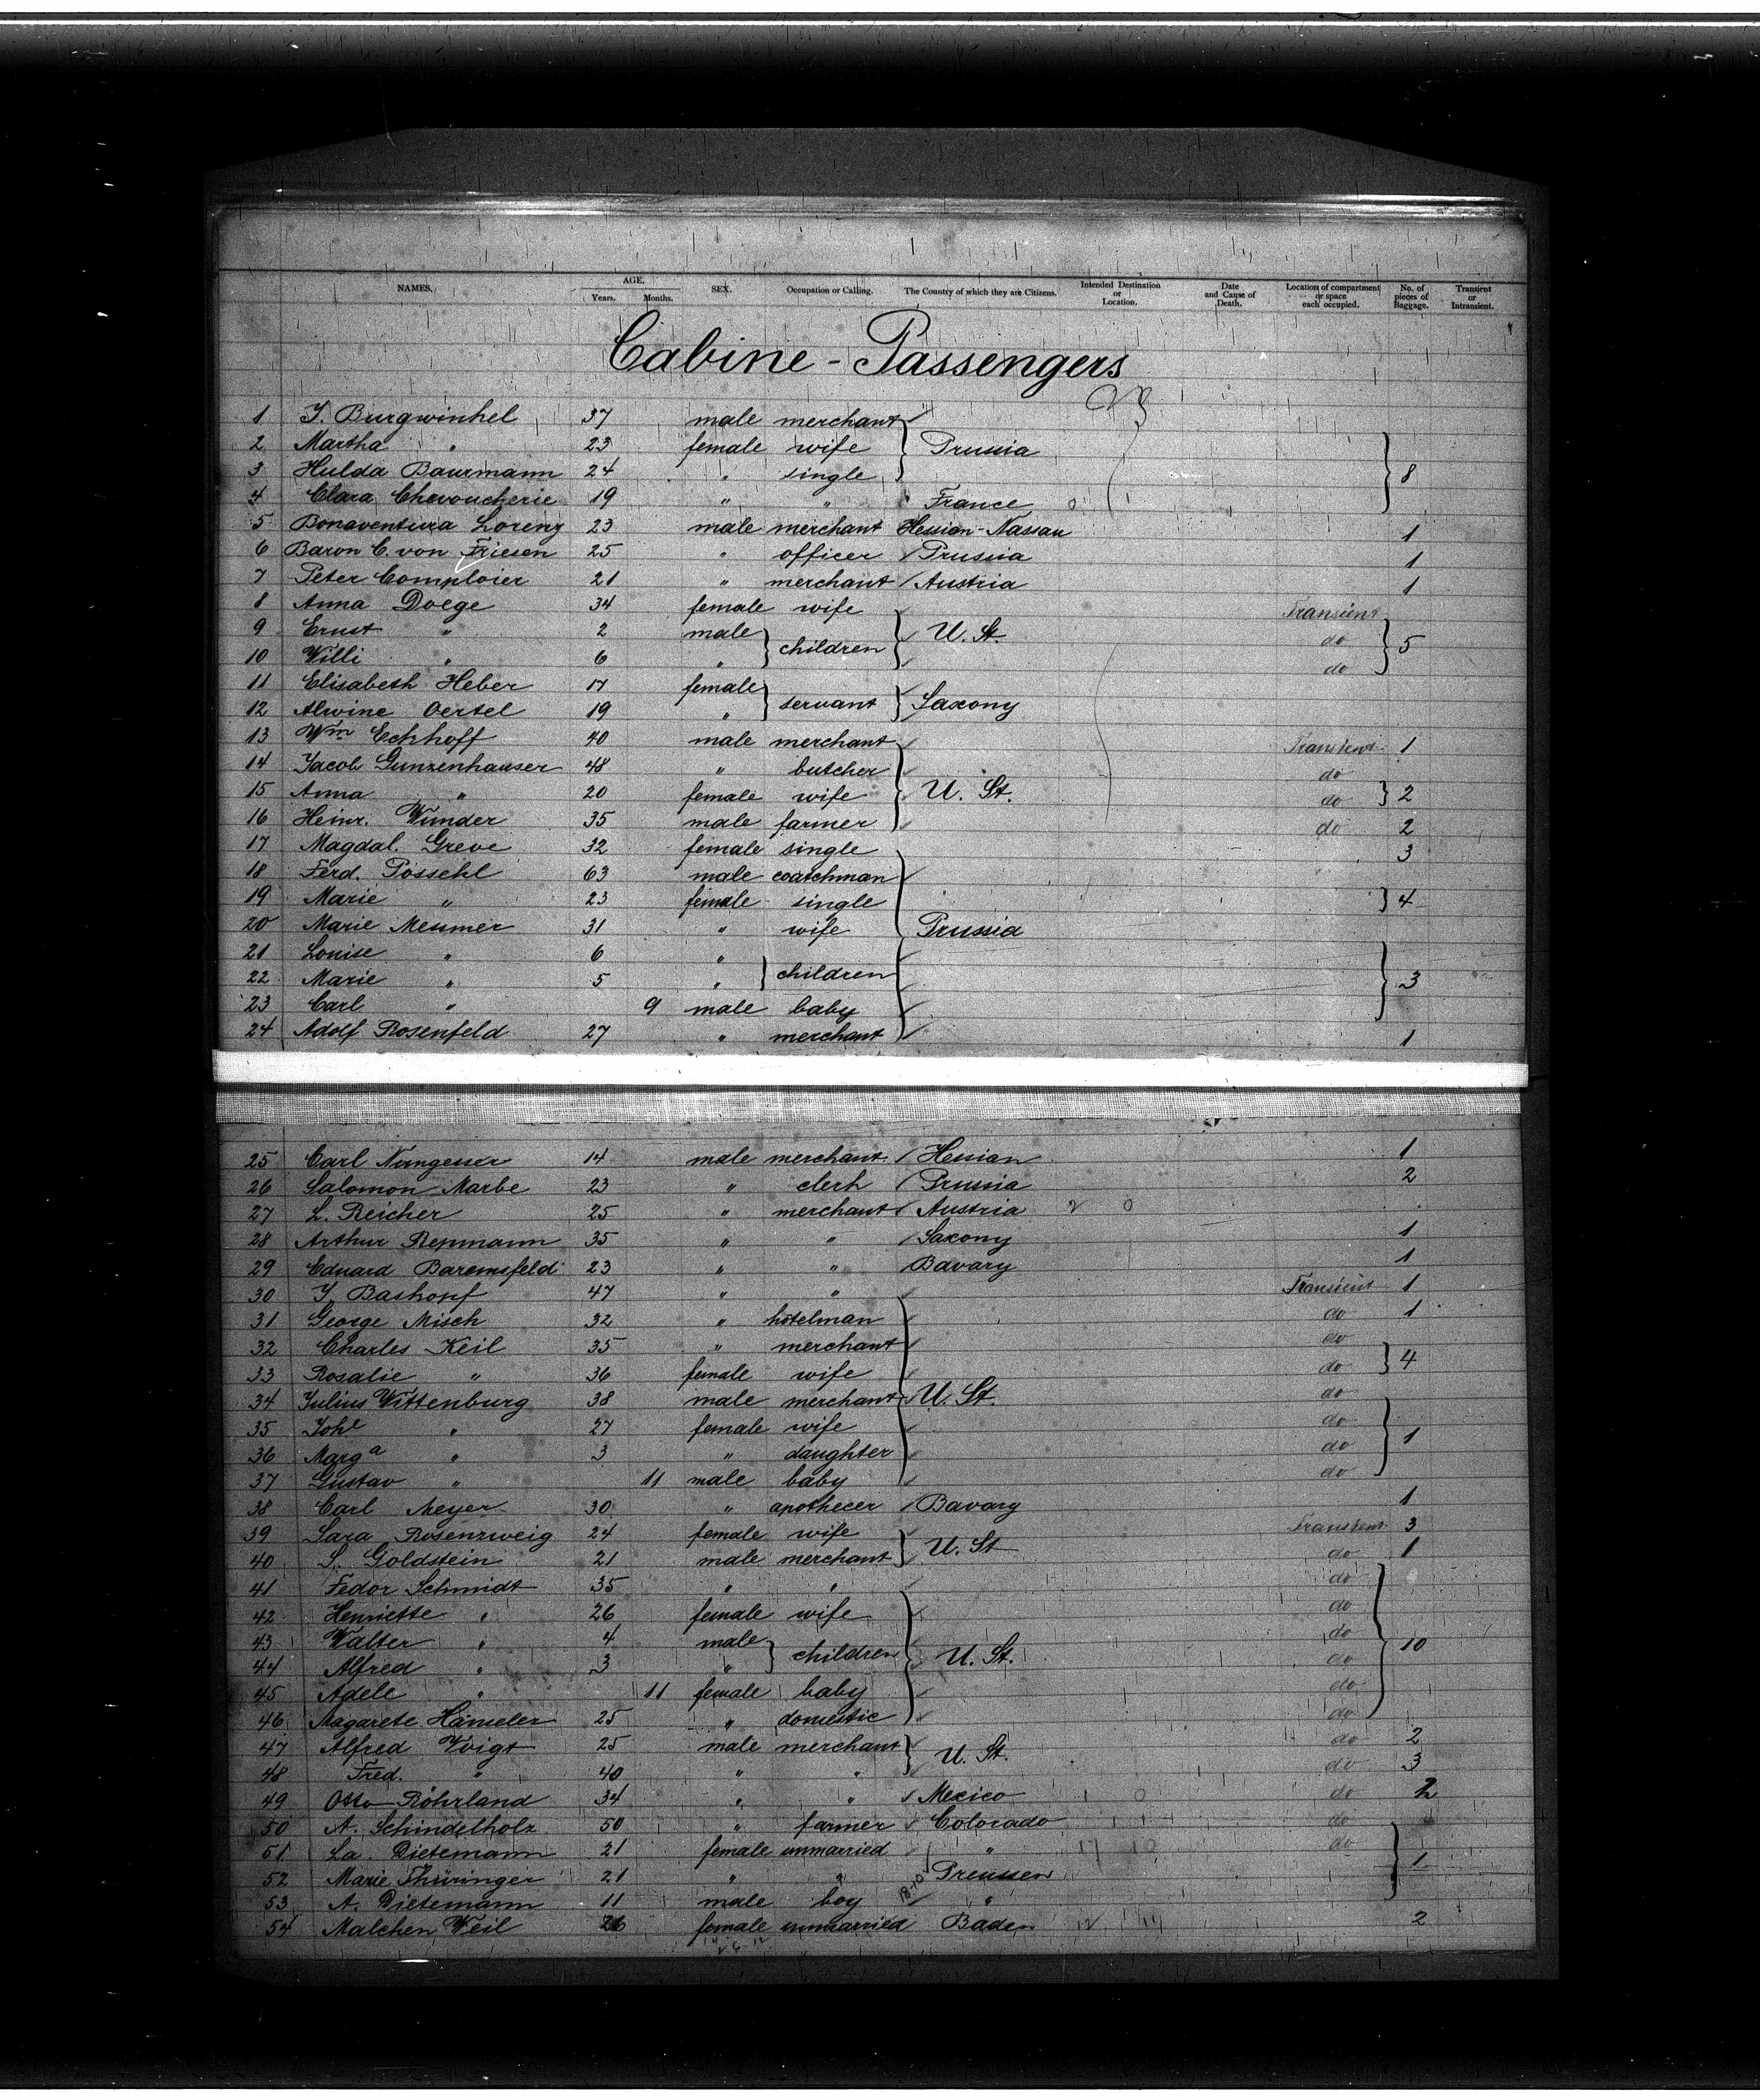 NAMES. AGE. Years. Months. SEX. Occupation or Calling. The Country of which they are Citizens. Intended Destination or Location. Date and Cause of Death. Location of compartment or space each occupied. No. of pieces of Baggage. Transient or Intransient.
Cabine - Passengers
1 J. Burgwinkel 37 male merchant
2 Martha " 23 female wife Prussia
3 Hulda Baurmann 24 " single 8
4 Clara Chevoucherie 19 " " France
5 Bonaventura Lorenz 23 male merchant Hessian-Nassau 1
6 Baron C. von Friesen 25 " officer Prussia 1
7 Peter Comploier 21 " merchant Austria 1
8 Anna Doege 34 female wife Transient
9 Ernst " 2 male children U. St. do 5
10 Willi " 6 " do
11 Elisabeth Heber 17 female servant Saxony
12 Alwine Oertel 19 "
13 Wm Eckhoff 40 male merchant Transient 1
14 Jacob Gunzenhauser 48 " butcher do
15 Anna " 20 female wife U. St. do 2
16 Heinr. Wunder 35 male farmer do 2
17 Magdal. Greve 32 female single 3
18 Ferd. Possehl 63 male coatchman
19 Marie " 23 female single 4
20 Marie Mesmer 31 " wife Prussia
21 Louise " 6 " children
22 Marie " 5 " 3
23 Carl " 9 male baby
24 Adolf Rosenfeld 27 " merchant 1
25 Carl Nungesser 14 male merchant Hessian 1
26 Salomon Marbe 23 " clerk Prussia 2
27 L. Reicher 25 " merchant Austria
28 Arthur Repmann 35 " " Saxony 1
29 Eduard Baremsfeld 23 " " Bavary 1
30 J Bashopf 47 " " Transient 1
31 George Misch 32 " hôtelman do 1
32 Charles Keil 35 " merchant do
33 Rosalie " 36 female wife do 4
34 Julius Wittenburg 38 male merchant U. St. do
35 Johe " 27 female wife do
36 Marga " 3 " daughter do 1
37 Gustav " 11 male baby do
38 Carl Meyer 30 " apothecer Bavary 1
39 Sara Rosenzweig 24 female wife Transient 3
40 S. Goldstein 21 male merchant U. St do 1
41 Fedor Schmidt 35 " " do
42 Henriette " 26 female wife do
43 Walter " 4 male children do 10
44 Alfred " 3 " U. St. do
45 Adele " 11 female baby do
46 Magarete Hänseler 25 " domestic do
47 Alfred Voigt 25 male merchant U. St. do 2
48 Fred. " 40 " " do 3
49 Otto Röhrland 34 " " Mexico do 2
50 A. Schindelholz 50 " farmer Colorado do
51 La. Dietemann 21 female unmarried " do 1
52 Marie Thüringer 21 " " Preussen
53 A. Dietemann 11 male boy "
54 Malchen Weil 26 female unmarried Baden 2